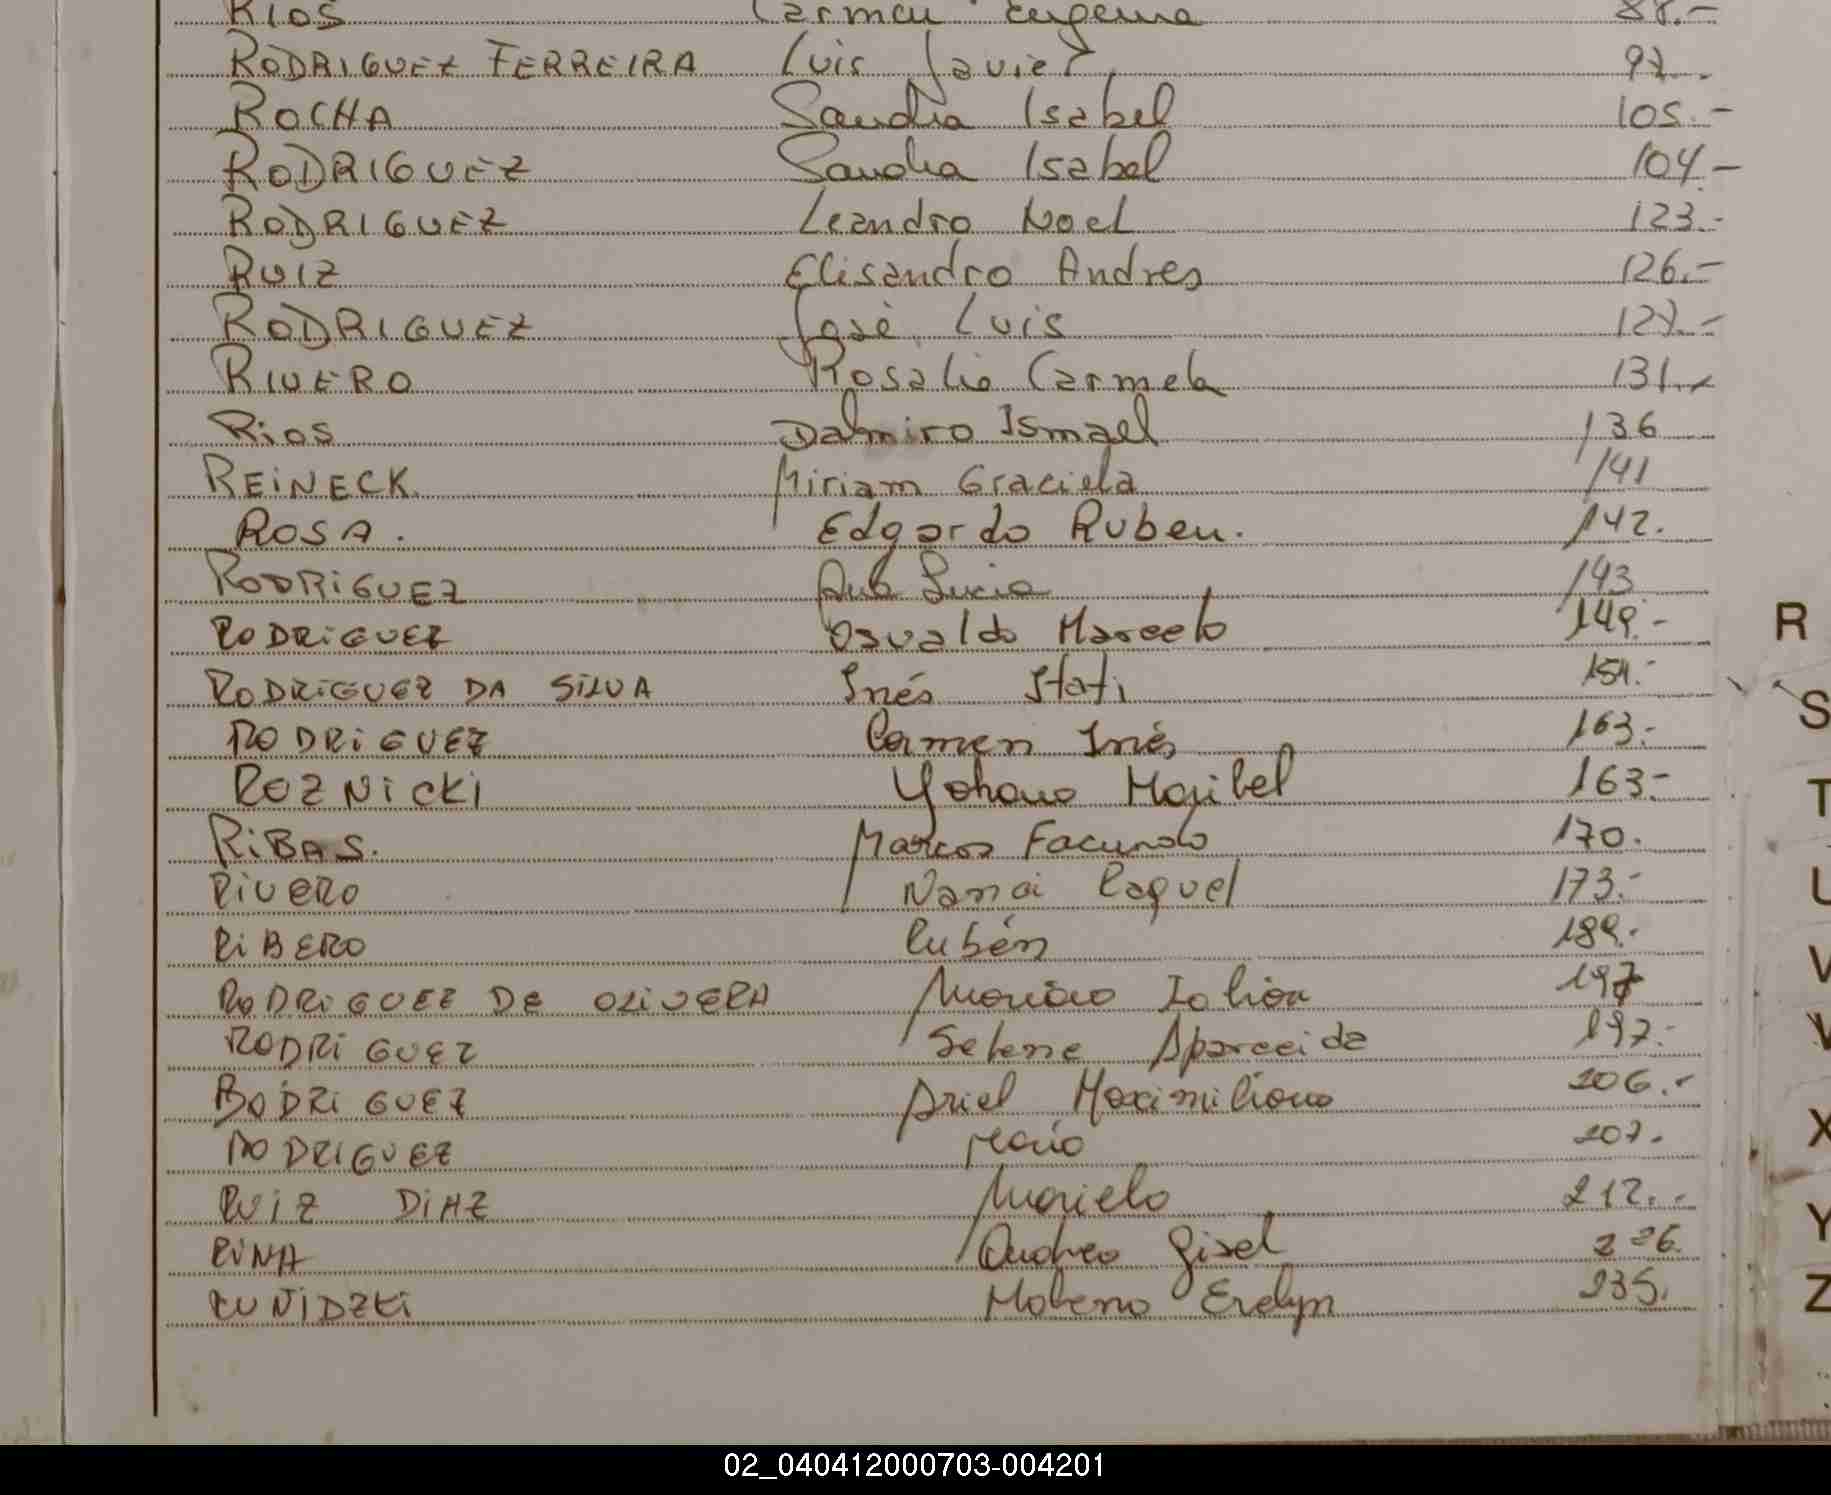 RIOS Carmen Eugenia 88.-
RODRIGUEZ FERREIRA Luis Javier 97.-
ROCHA Sandra Isabel 105.-
RODRIGUEZ Sandra Isabel 104.-
RODRIGUEZ Leandro Noel 123.-
RUIZ Elisandro Andres 126.-
RODRIGUEZ José Luis 127.-
RIVERO Rosalia Carmela 131.-
RioS Dalmiro Ismael 136
REiNECK. Miriam Graciela 141
ROSA. Edgardo Ruben. 142.
RODRiGUEZ Ana Lucia 143
RODRiGUEZ Osvaldo Marcelo 149.-
RODRiGUEZ DA SiLVA Inés Itati 154.-
RODRiGUEZ Carmen Inés 163.-
ROZNiCKi Yohana Maribel 163.-
RiBAS. Marcos Facundo 170.
RiVERO Nanci Raquel 173.-
RiBERO Rubén 189.-
RODRiGUEZ DE OLiVERA 197
RODRiGUEZ Selene Aparecida 197.-
RODRiGUEZ Ariel Maximiliano 206.-
RODRIGUEZ 207.
RUiZ DiAZ Mariela 212.-
Andrea Gisel 226.
Evelyn 235.
R
S
T
U
V
X
Y
Z
02_040412000703-004201